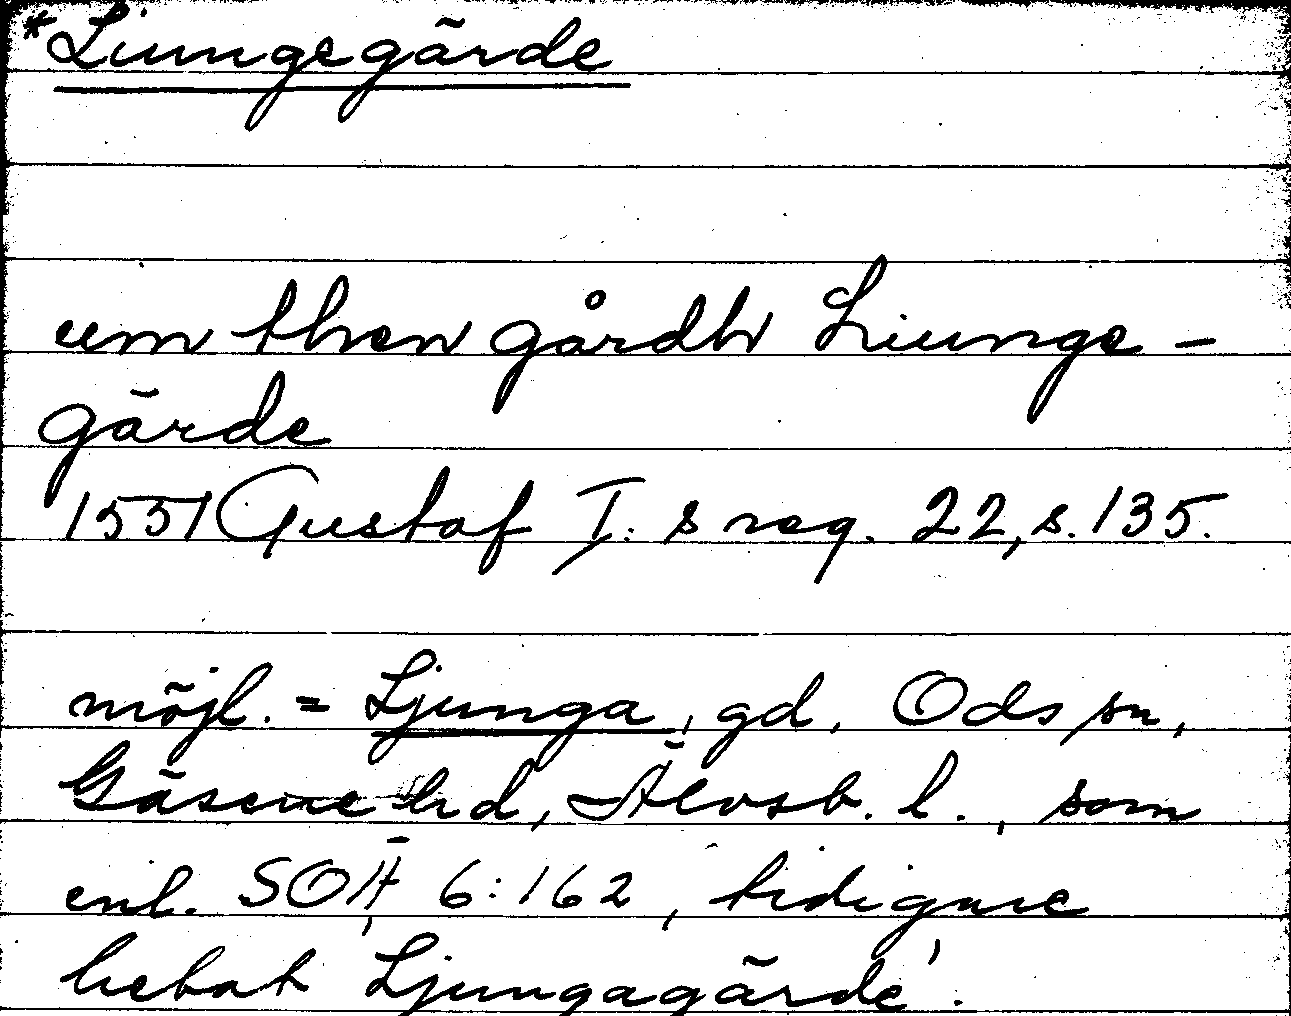 *Liungegärde
um then gårdh Liunge-
gärde
1551 Gustaf I:s reg. 22, s. 135.
möjl. = Ljunga, gd, Ods sn,
Gäsene hd, Älvsb. l., som
enl. SOÄ 6:162, tidigare
hetat 'Ljungagärde'.